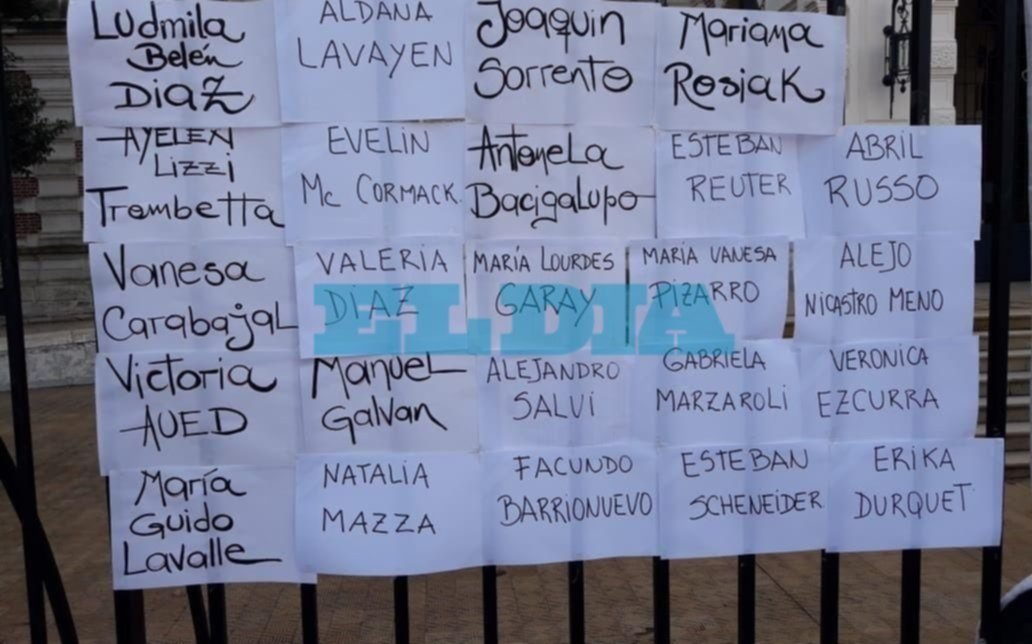 Ludmila
Belén
DiaZ
ALDANA
LAVAYEN
Joaquin
Sorrento
Mariana
RosiaK
AYELEN
LiZZi
Trombetta
EVELIN
Mc CORMACK.
AntoneLa
Bacigalupo
ESTEBAN
REUTER
ABRIL
RUSSO
Vanesa
CarabajaL
VALERIA
DIAZ
MARÍA LOURDES
GARAY
MARIA VANESA
PIZARRO
ALEJO
NICASTRO MENO
EL DIA
Victoria
AUED
ManueL
Galvan
ALEJANDRO
SALVI
GABRIELA
MARZAROLI
VERONICA
EZCURRA
María
Guido
Lavalle
NATALIA
MAZZA
FACUNDO
BARRIONUEVO
ESTEBAN
SCHENEIDER
ERIKA
DURQUET